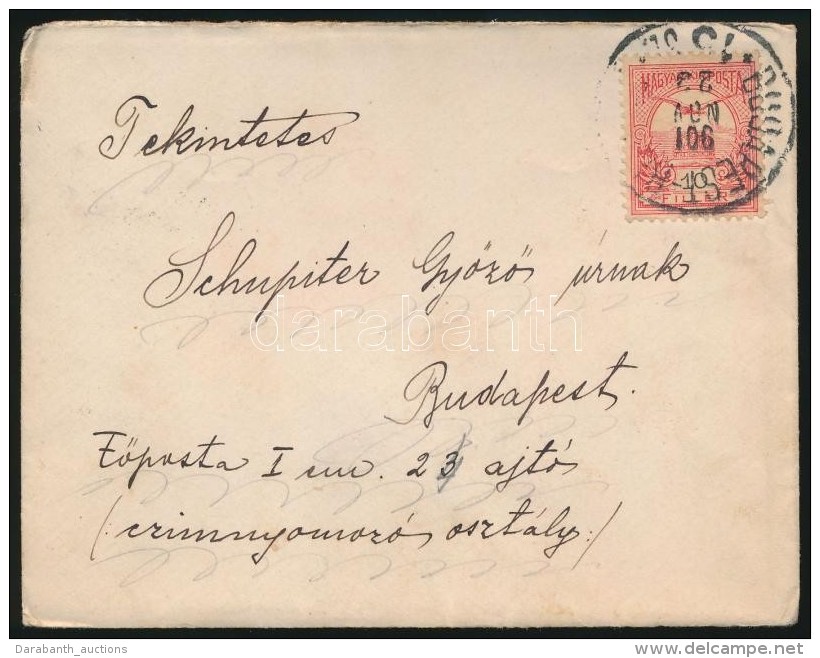 Tekintetes
Schupiter Győző úrnak
Budapest.
Főposta I em. 23 ajtó
(czimnyomozó osztály.)
MAGYAR KIR. POSTA
10
FILLÉR
BUDAPEST
901
NOV
22
darabanth
Darabanth_auctions
www.delcampe.net